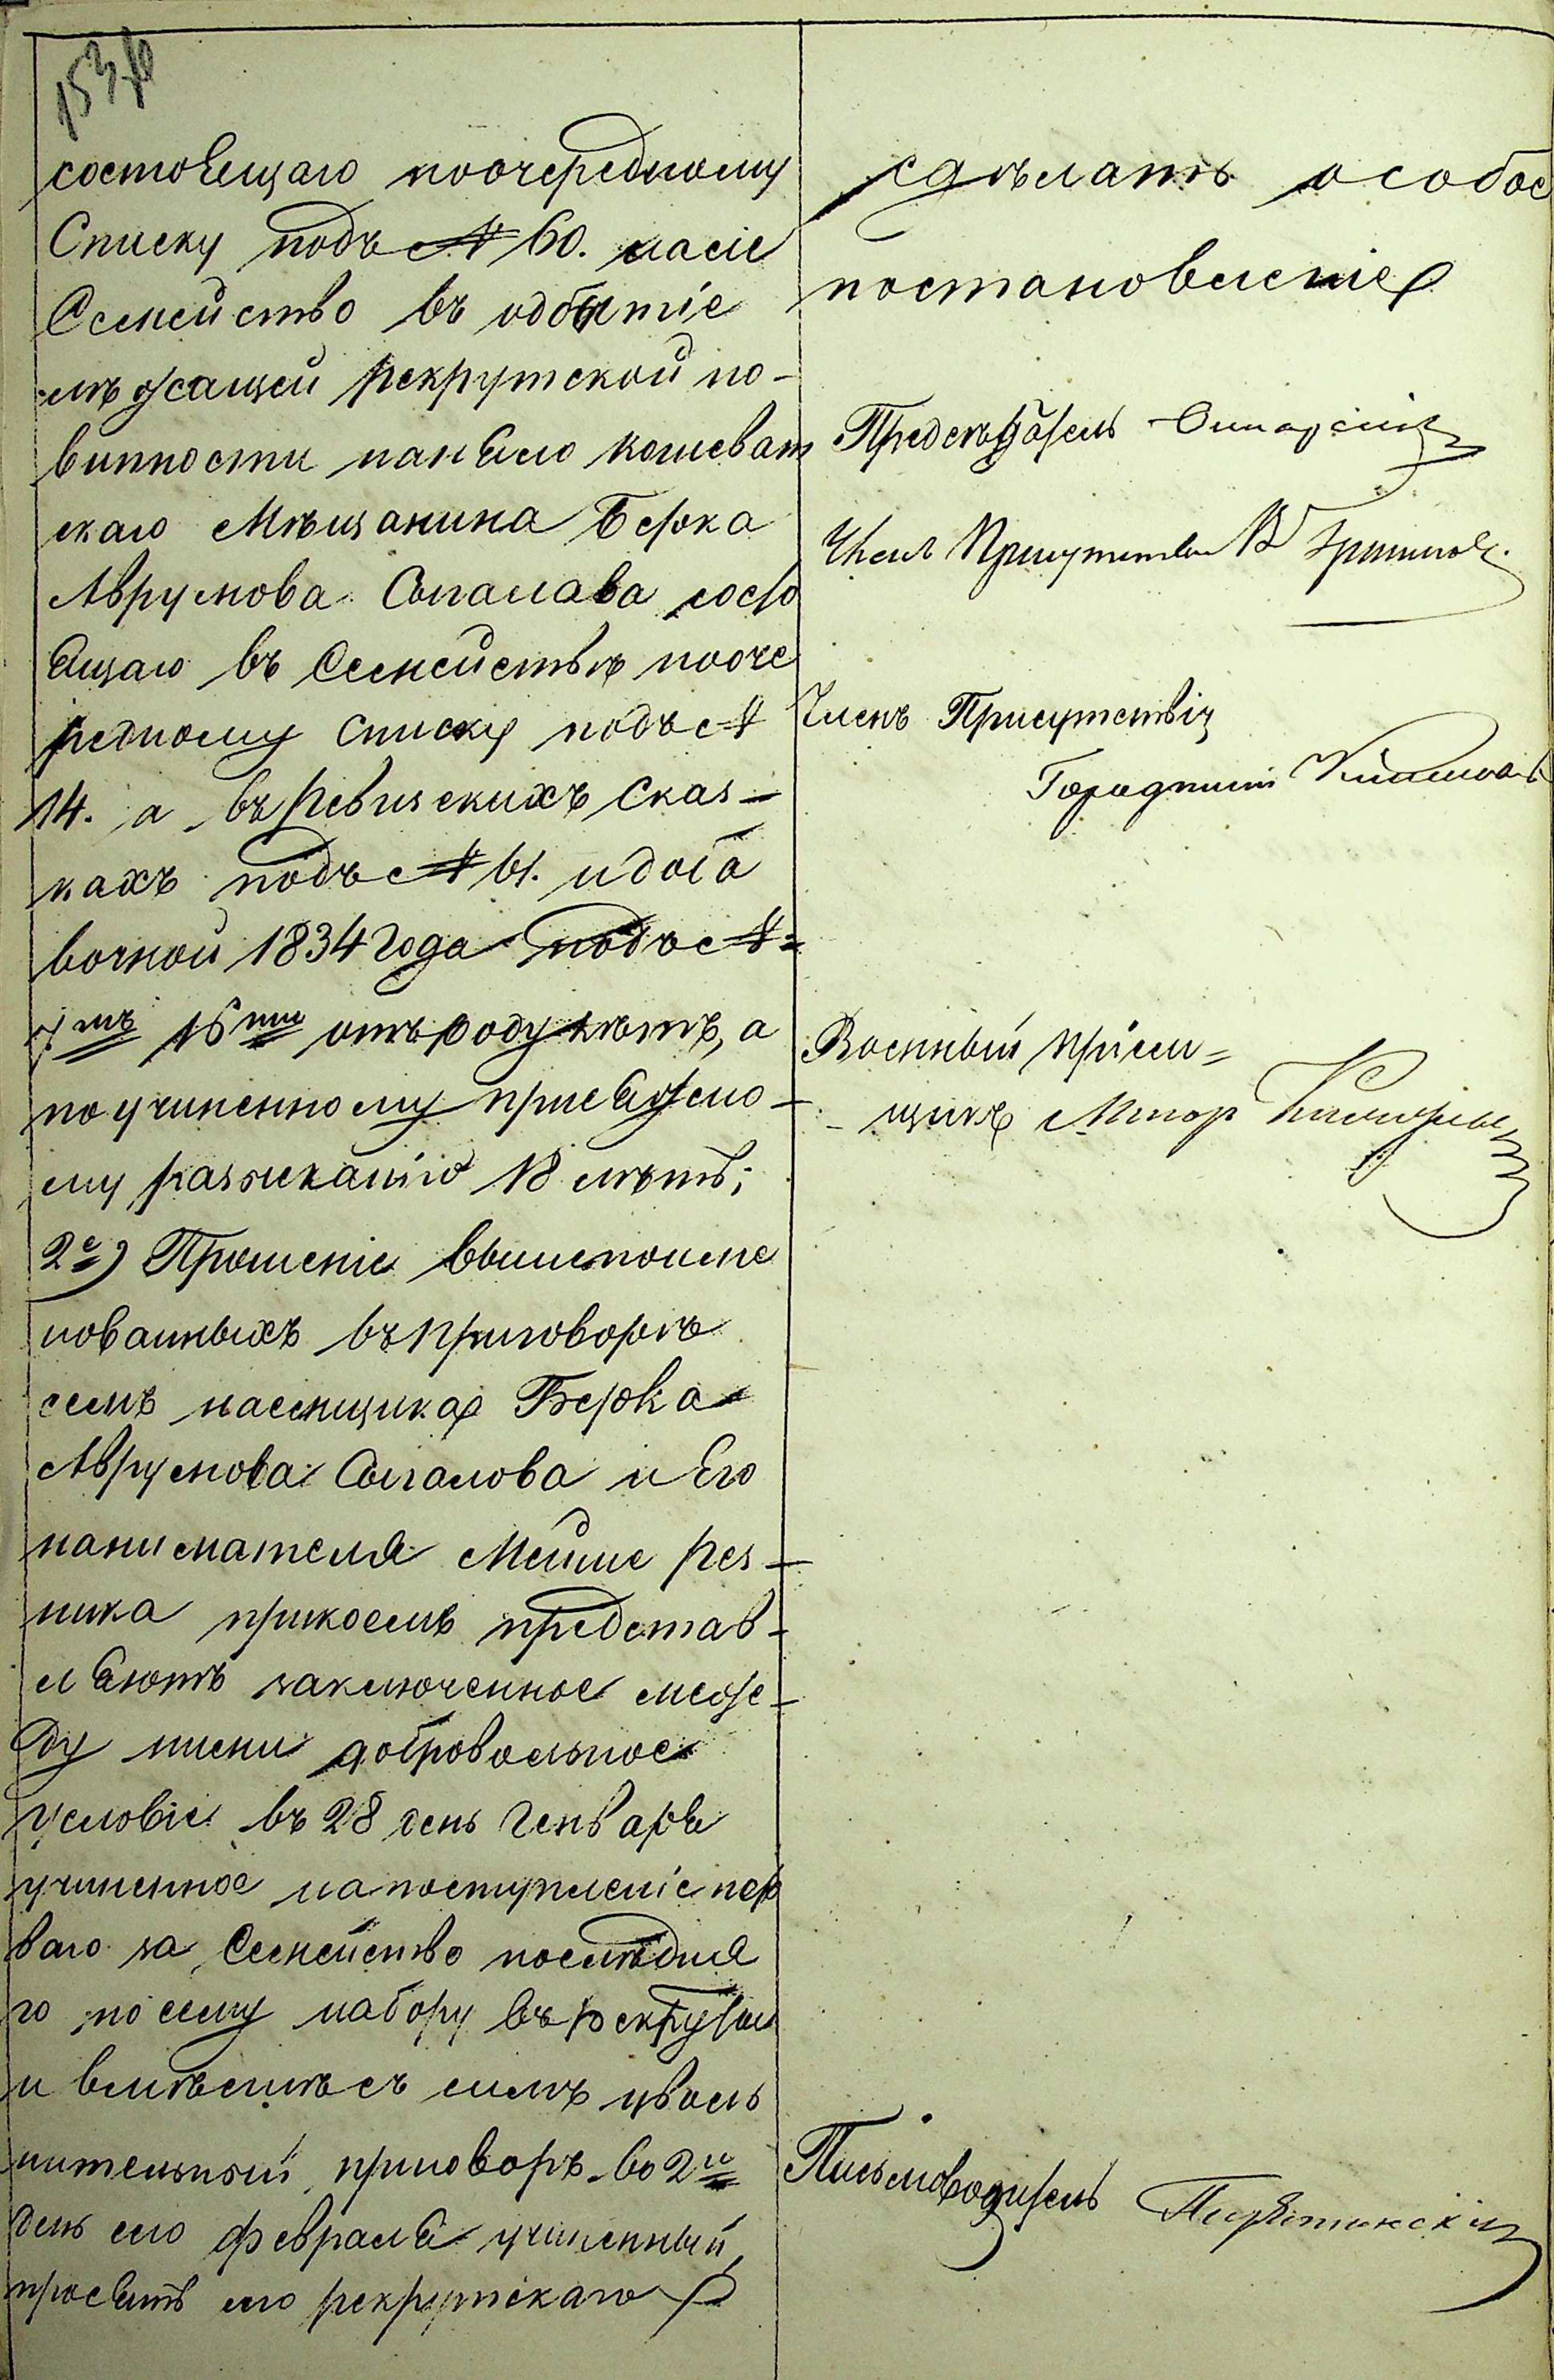 состоящаго поочередному
Списку подъ № 60. насіе
Семейство въ одбытіе
лежащей рекрутской по-
винности нанялю кошеват
скаго Мѣщанина Берка
Аврумова Сыгалава состо
ящаго въ Семействѣ пооче
редному Списку подъ №
14. а въ ревизскихъ Сказ-
кахъ подъ № 61. и доба
вочной 1834 года подъ №=
7мъ 16ти отъ роду лѣтъ, а
по учиненному присяжно-
му разысканію 18 лѣтъ;
2е) Прошеніе вышепоиме
нованныхъ въ приговорѣ
семъ наемщика Берка
Аврумова Сыгалова и Его
нанимателя Мейше рез-
ника при коемъ представ-
ляютъ заключенное меж-
ду ними добровольное
условіе въ 28 день Генваря
учиненное на поступленіе пер
ваго за Семейство последня
го по сему набору въ рекруты
и вмѣстѣ съ симъ уволь
нительный приговоръ во 2й
день сего февраля учиненный,
просятъ сего рекрутскаго
сдѣлать особое
постановленіе
Предсѣдатель
Членъ Присутствія
Членъ Присутствія
Городничій
Военный Пріем=
-щикъ Маіор
Письмоводитель